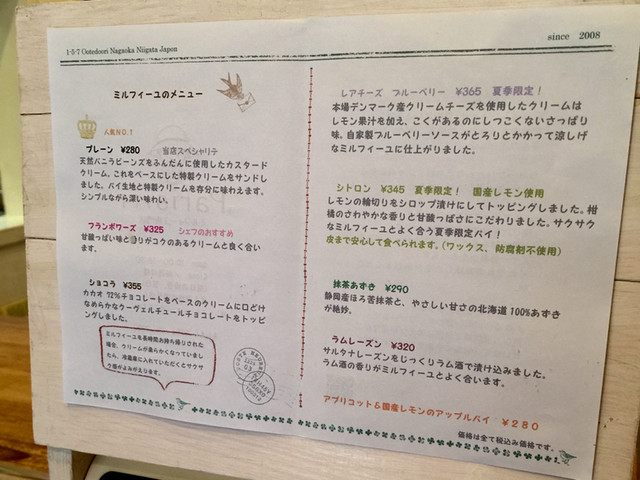 1-5-7 Ootedoori Nagaoka Niigata Japon
since 2008
ミルフィーユのメニュー
人気NO.1
プレーン ¥280 当店スペシャリテ
天然バニラビーンズをふんだんに使用したカスタード
クリーム。これをベースにした特製クリームをサンドし
ました。パイ生地と特製クリームを存分に味わえます。
シンプルながら深い味わい。
フランボワーズ ¥325 シェフのおすすめ
甘酸っぱい味と りがコクのあるクリームと良く合い
ます。
ショコラ ¥355
カカオ 72%チョコレートをベースのクリームに口どけ
なめらかなクーヴェルチュールチョコレートをトッピ
ングしました。
ミルフィーユを長時間お持ち帰りされた
場合、クリームが柔らかくなっていまし
たら、冷蔵庫に入れていただくとサクサ
ク感がよみがえります。
レアチーズ ブルーベリー ¥365 夏季限定！
本場デンマーク産クリームチーズを使用したクリームは
レモン果汁を加え、こくがあるのにしつこくないさっぱり
味。自家製ブルーベリーソースがとろりとかかって涼しげ
なミルフィーユに仕上がりました。
シトロン ¥345 夏季限定！ 国産レモン使用
レモンの輪切りをシロップ漬けにしてトッピングしました。柑
橘のさわやかな香りと甘酸っぱさにこだわりました。サクサク
なミルフィーユとよく合う夏季限定パイ！
皮まで安心して食べられます。（ワックス、防腐剤不使用）
抹茶あずき ¥290
静岡産ほろ苦抹茶と、やさしい甘さの北海道100%あずき
が絶妙。
ラムレーズン ¥320
サルタナレーズンをじっくりラム酒で漬け込みました。
ラム酒の香りがミルフィーユとよく合います。
アプリコット＆国産レモンのアップルパイ ¥280
価格は全て税込み価格です。